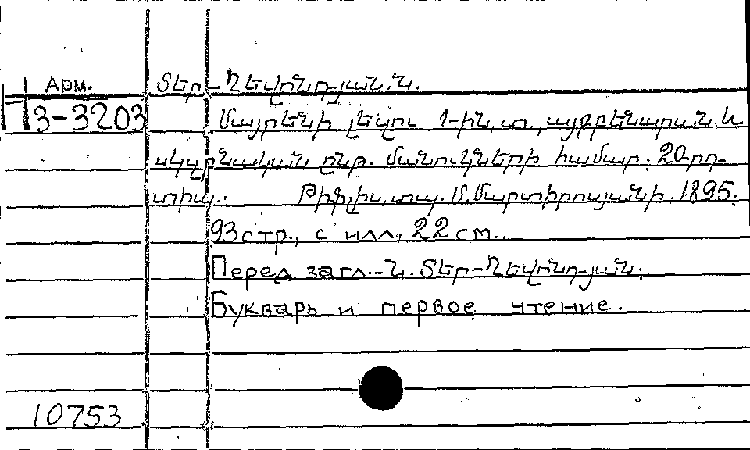 Арм. Տեր-Ղեվոնդյան. Ն.
3-3203 Մայրենի լեզու 1-ին տ., այբբենարան և
սկզբնական ընթ. մանուկների համար. 20րդ
տիպ. Թիֆլիս, տպ. Մ. Մարտիրոսյանի, 1895.
93 стр., с илл., 22 см.
Перед загл.-Ն. Տեր-Ղեվոնդյան.
Букварь и первое чтение.
10753